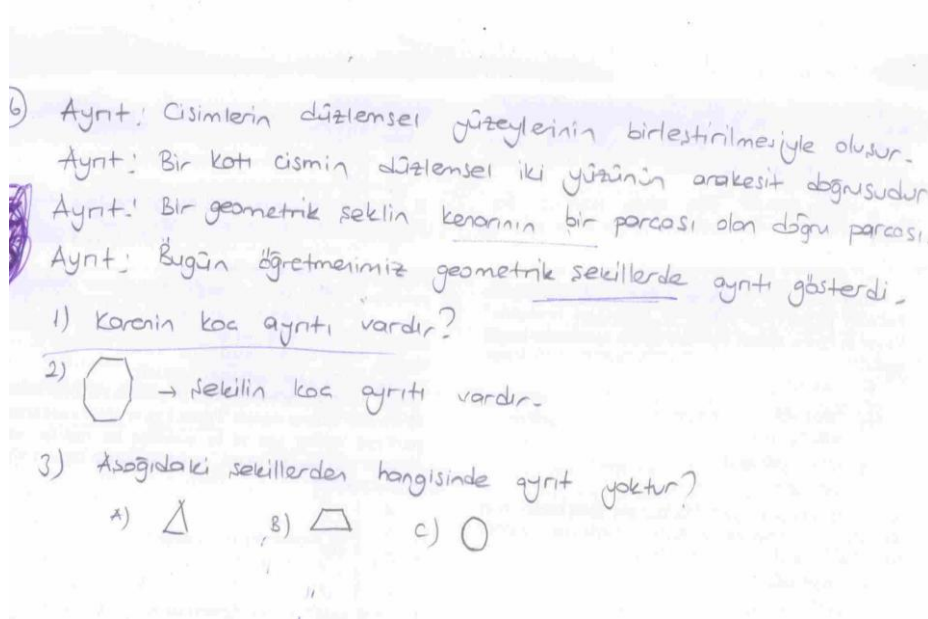 6) Ayrıt: Cisimlerin düzlemsel yüzeylerinin birleştirilmesiyle oluşur.
Ayrıt: Bir katı cismin düzlemsel iki yüzünün arakesit doğrusudur
Ayrıt: Bir geometrik şeklin kenarının bir parçası olan doğru parçası
Ayrıt: Bugün öğretmenimiz geometrik şekillerde ayrıtı gösterdi.
1) Karenin kaç ayrıtı vardır?
2) → Şekilin kaç ayrıtı vardır.
3) Aşağıdaki şekillerden hangisinde ayrıt yoktur?
A) B) C)